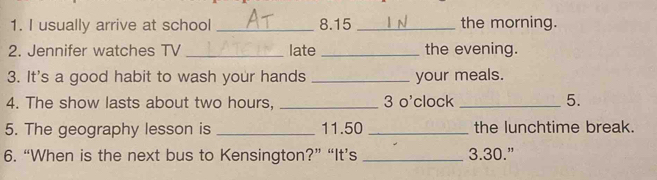 1. I usually arrive at school AT 8.15 IN the morning.
2. Jennifer watches TV ____ late ____ the evening.
3. It's a good habit to wash your hands ____ your meals.
4. The show lasts about two hours, ____ 3 o'clock ____ 5.
5. The geography lesson is ____ 11.50 ____ the lunchtime break.
6. "When is the next bus to Kensington?" "It's ____ 3.30."